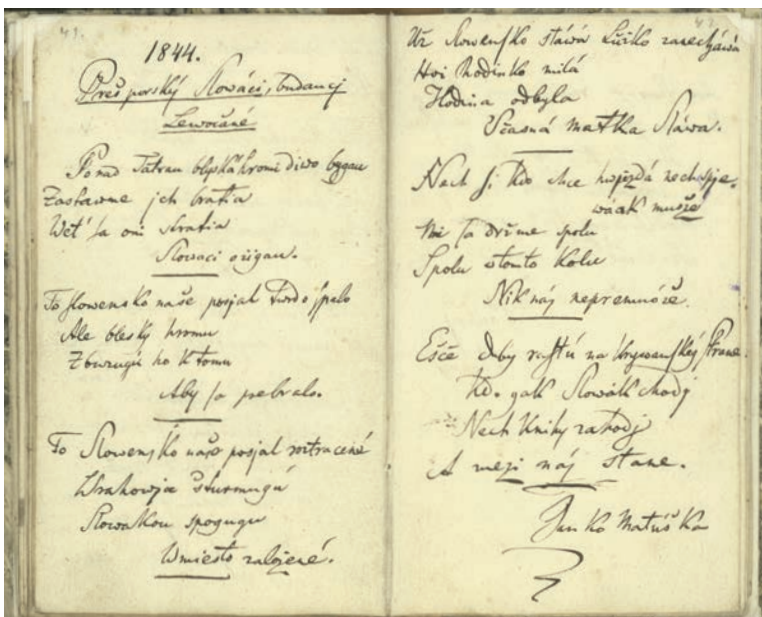 41.
1844.
Prešporský Slowáci, budaucj
Lewočané
Ponad Tatrau blýská hromi diwo bygau
Zastawme jch bratia
Weť sa oni stratia
Slowaci ožigau.
To Slowensko naše posjal twrdo spalo
Ale bleský hromu
Zburugú ho k tomu
Aby sa prebralo.
To Slowensko naše posjal roztracené
Wrahowja šturmugú
Slowakou spogugu
W miesto založené.
Uz Slowensko stáwá zanecháwá
Hoi Rodinko milá
Hodina odbyla
matka Sláwa.
Nech si kdo chce hwjzdá nech spje-
wáak muože
Mi sa držme spolu
Spolu wtomto kolu
Nik náj nepremuože.
Ešče Duby rastú na Krywanskej Strane.
Kd. gak Slowák chodj
Nech Knihy zahodj
A mezi náj stane.
Janko Matúška